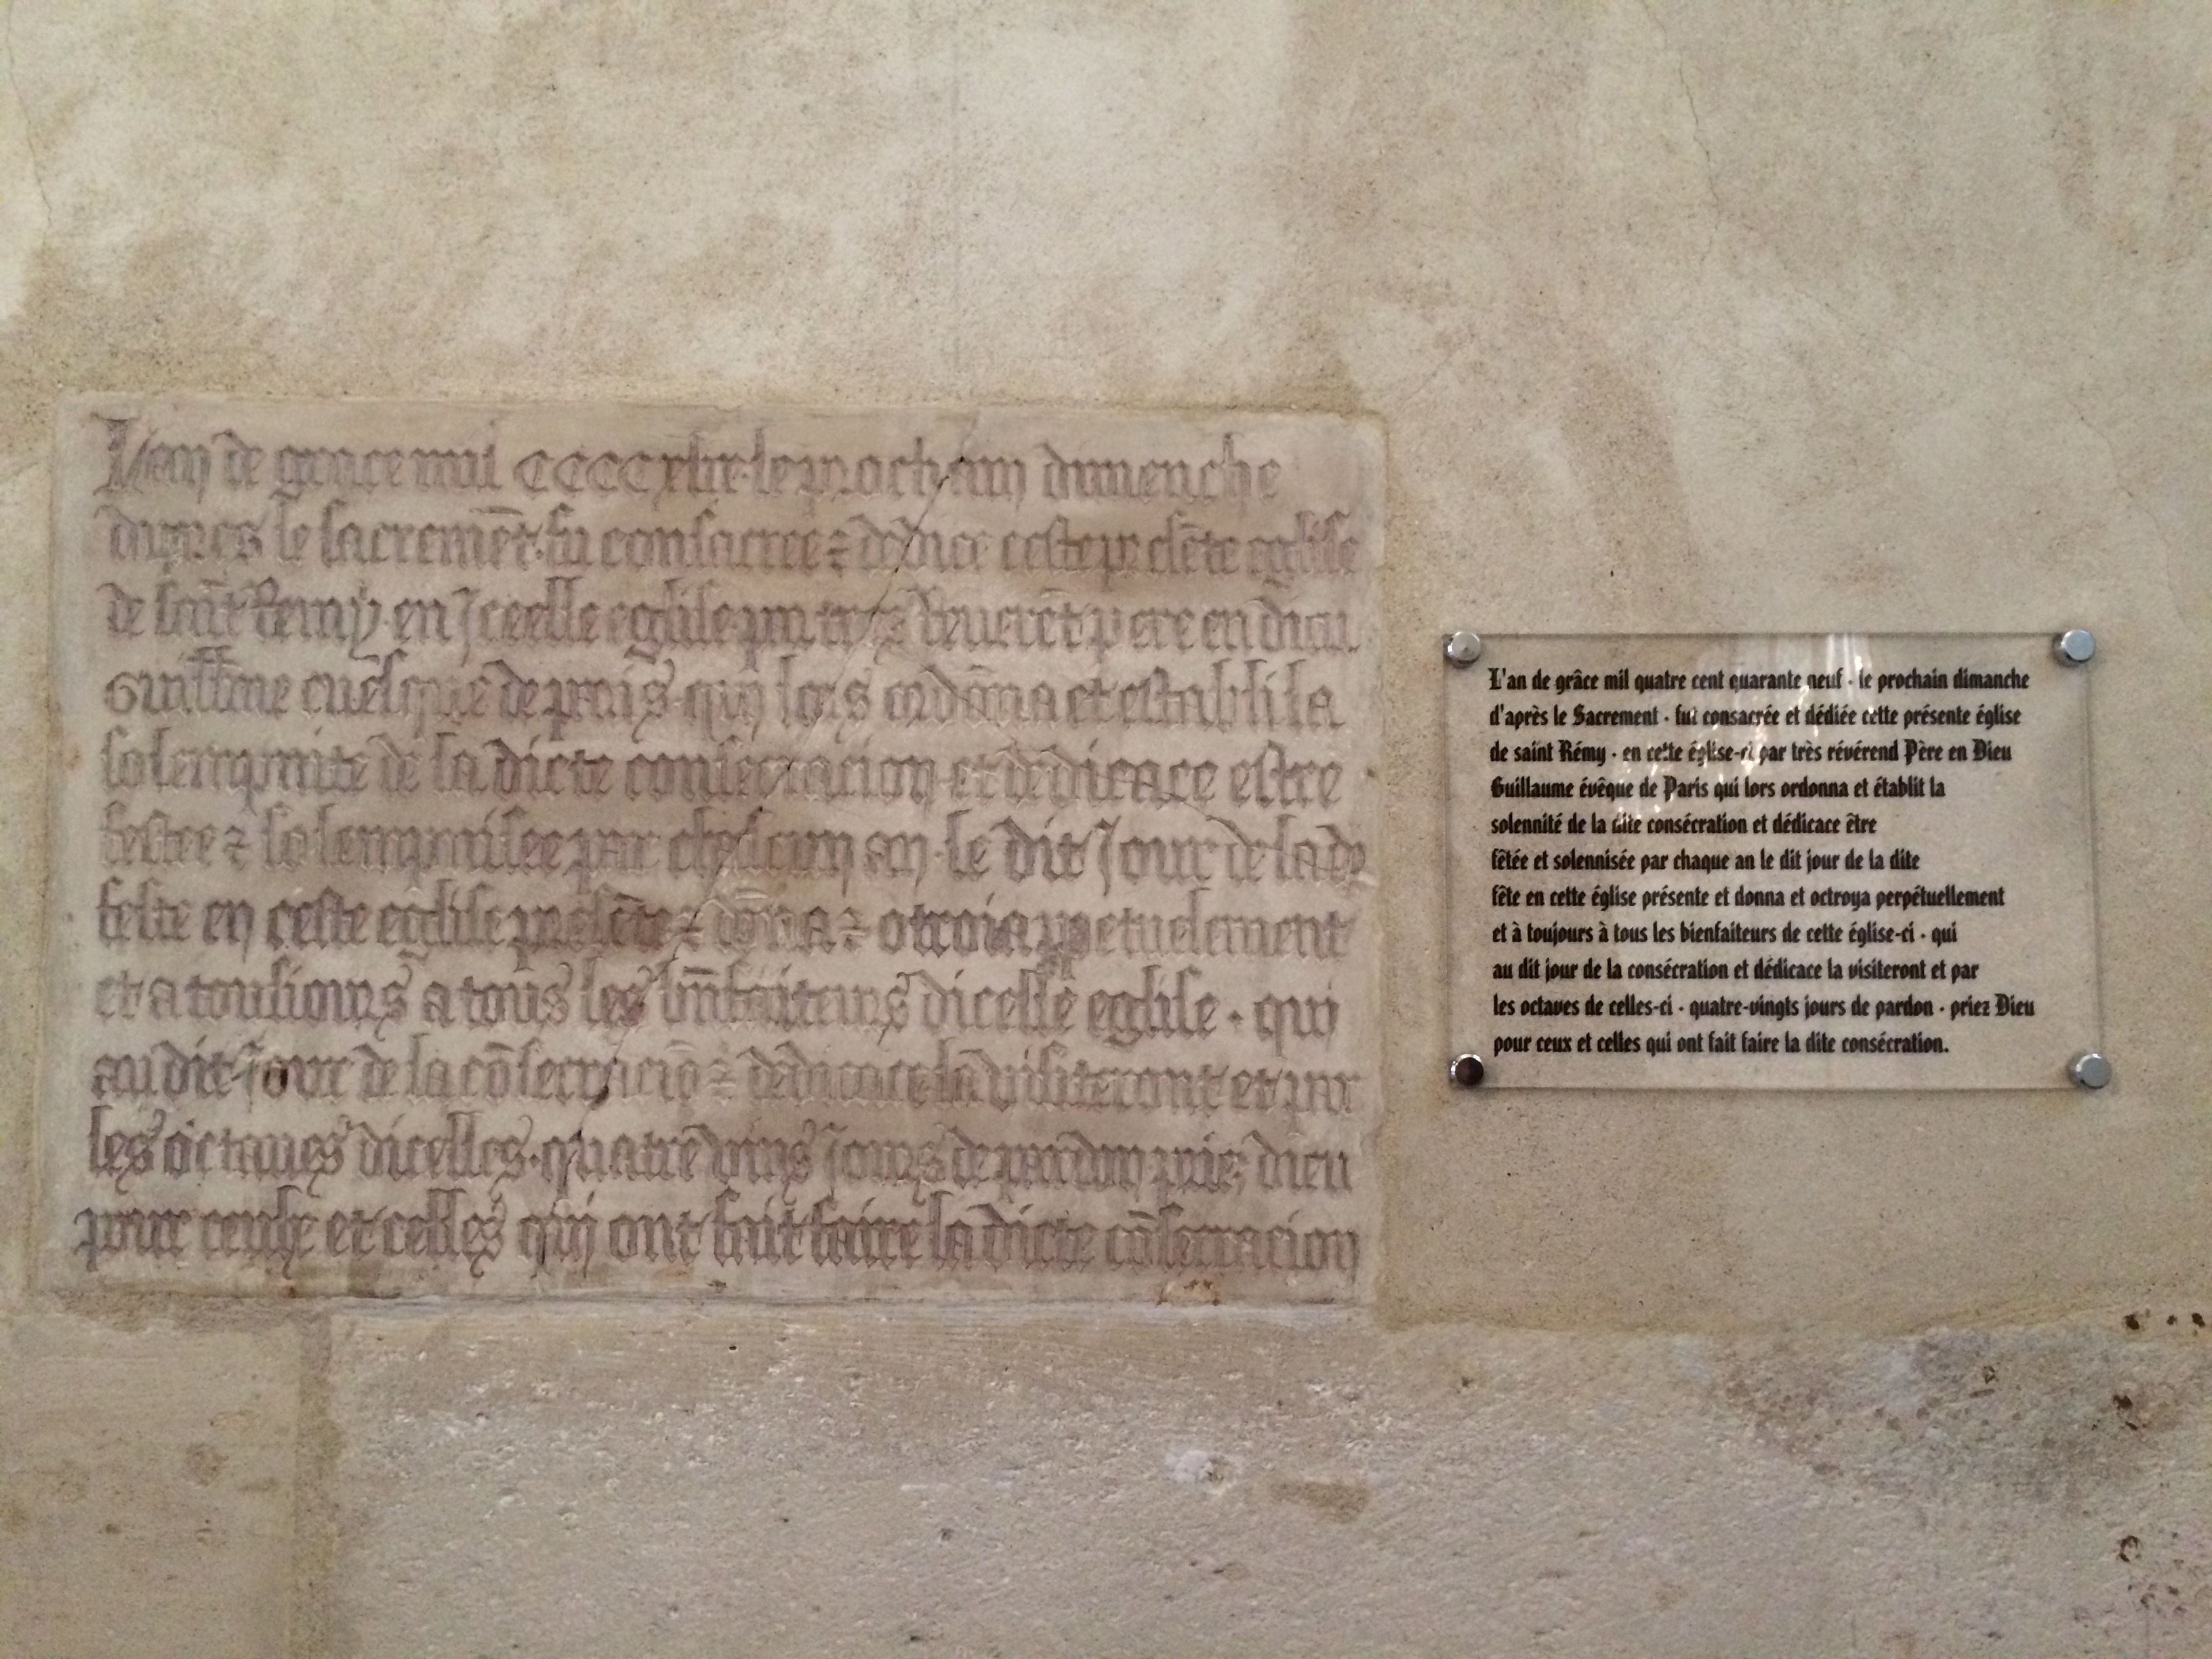 L'an de grace mil CCCC xlix · le prochain dimenche
dapres le sacremēt · fu consacree ⁊ dediee ceste presēte eglise
de sait Remy · en Jceelle eglise par tres Reuerēt pere en dieu
Guillme euesque de paris · qui lors ordōna et establi la
solempnite de la dicte consecracion et dedicace estre
festee ⁊ solempnisee par chascun an · le dit Jour de la de
feste en ceste eglise presēte ⁊ dōna ⁊ otroia perpetuelement
et a tousiours a tous les bn̄faiteurs dicelle eglise · qui
au dit Jour de la cōsecraciō ⁊ dedicace la visiteront et par
les octaues dicelles · quatre vins Jours de pardon priez dieu
pour ceulx et celles qui ont fait faire la dicte cōsecracion
L'an de grâce mil quatre cent quarante neuf · le prochain dimanche
d'après le Sacrement · fut consacrée et dédiée cette présente église
de saint Rémy · en cette église-ci par très révérend Père en Dieu
Guillaume évêque de Paris qui lors ordonna et établit la
solennité de la dite consécration et dédicace être
fêtée et solennisée par chaque an le dit jour de la dite
fête en cette église présente et donna et octroya perpétuellement
et à toujours à tous les bienfaiteurs de cette église-ci · qui
au dit jour de la consécration et dédicace la visiteront et par
les octaves de celles-ci · quatre-vingts jours de pardon · priez Dieu
pour ceux et celles qui ont fait faire la dite consécration.